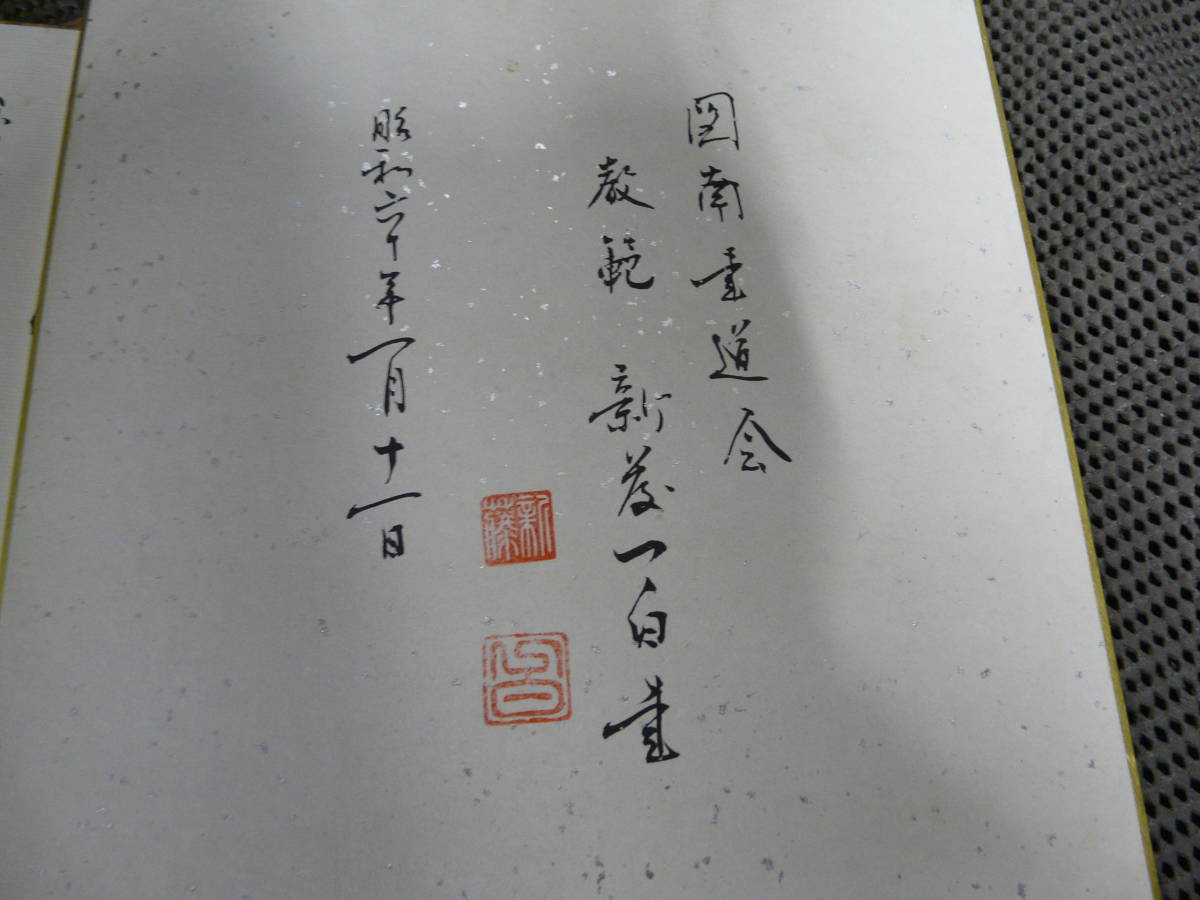 図南書道会
教範 新藤一白書
昭和六十年一月十一日
新藤